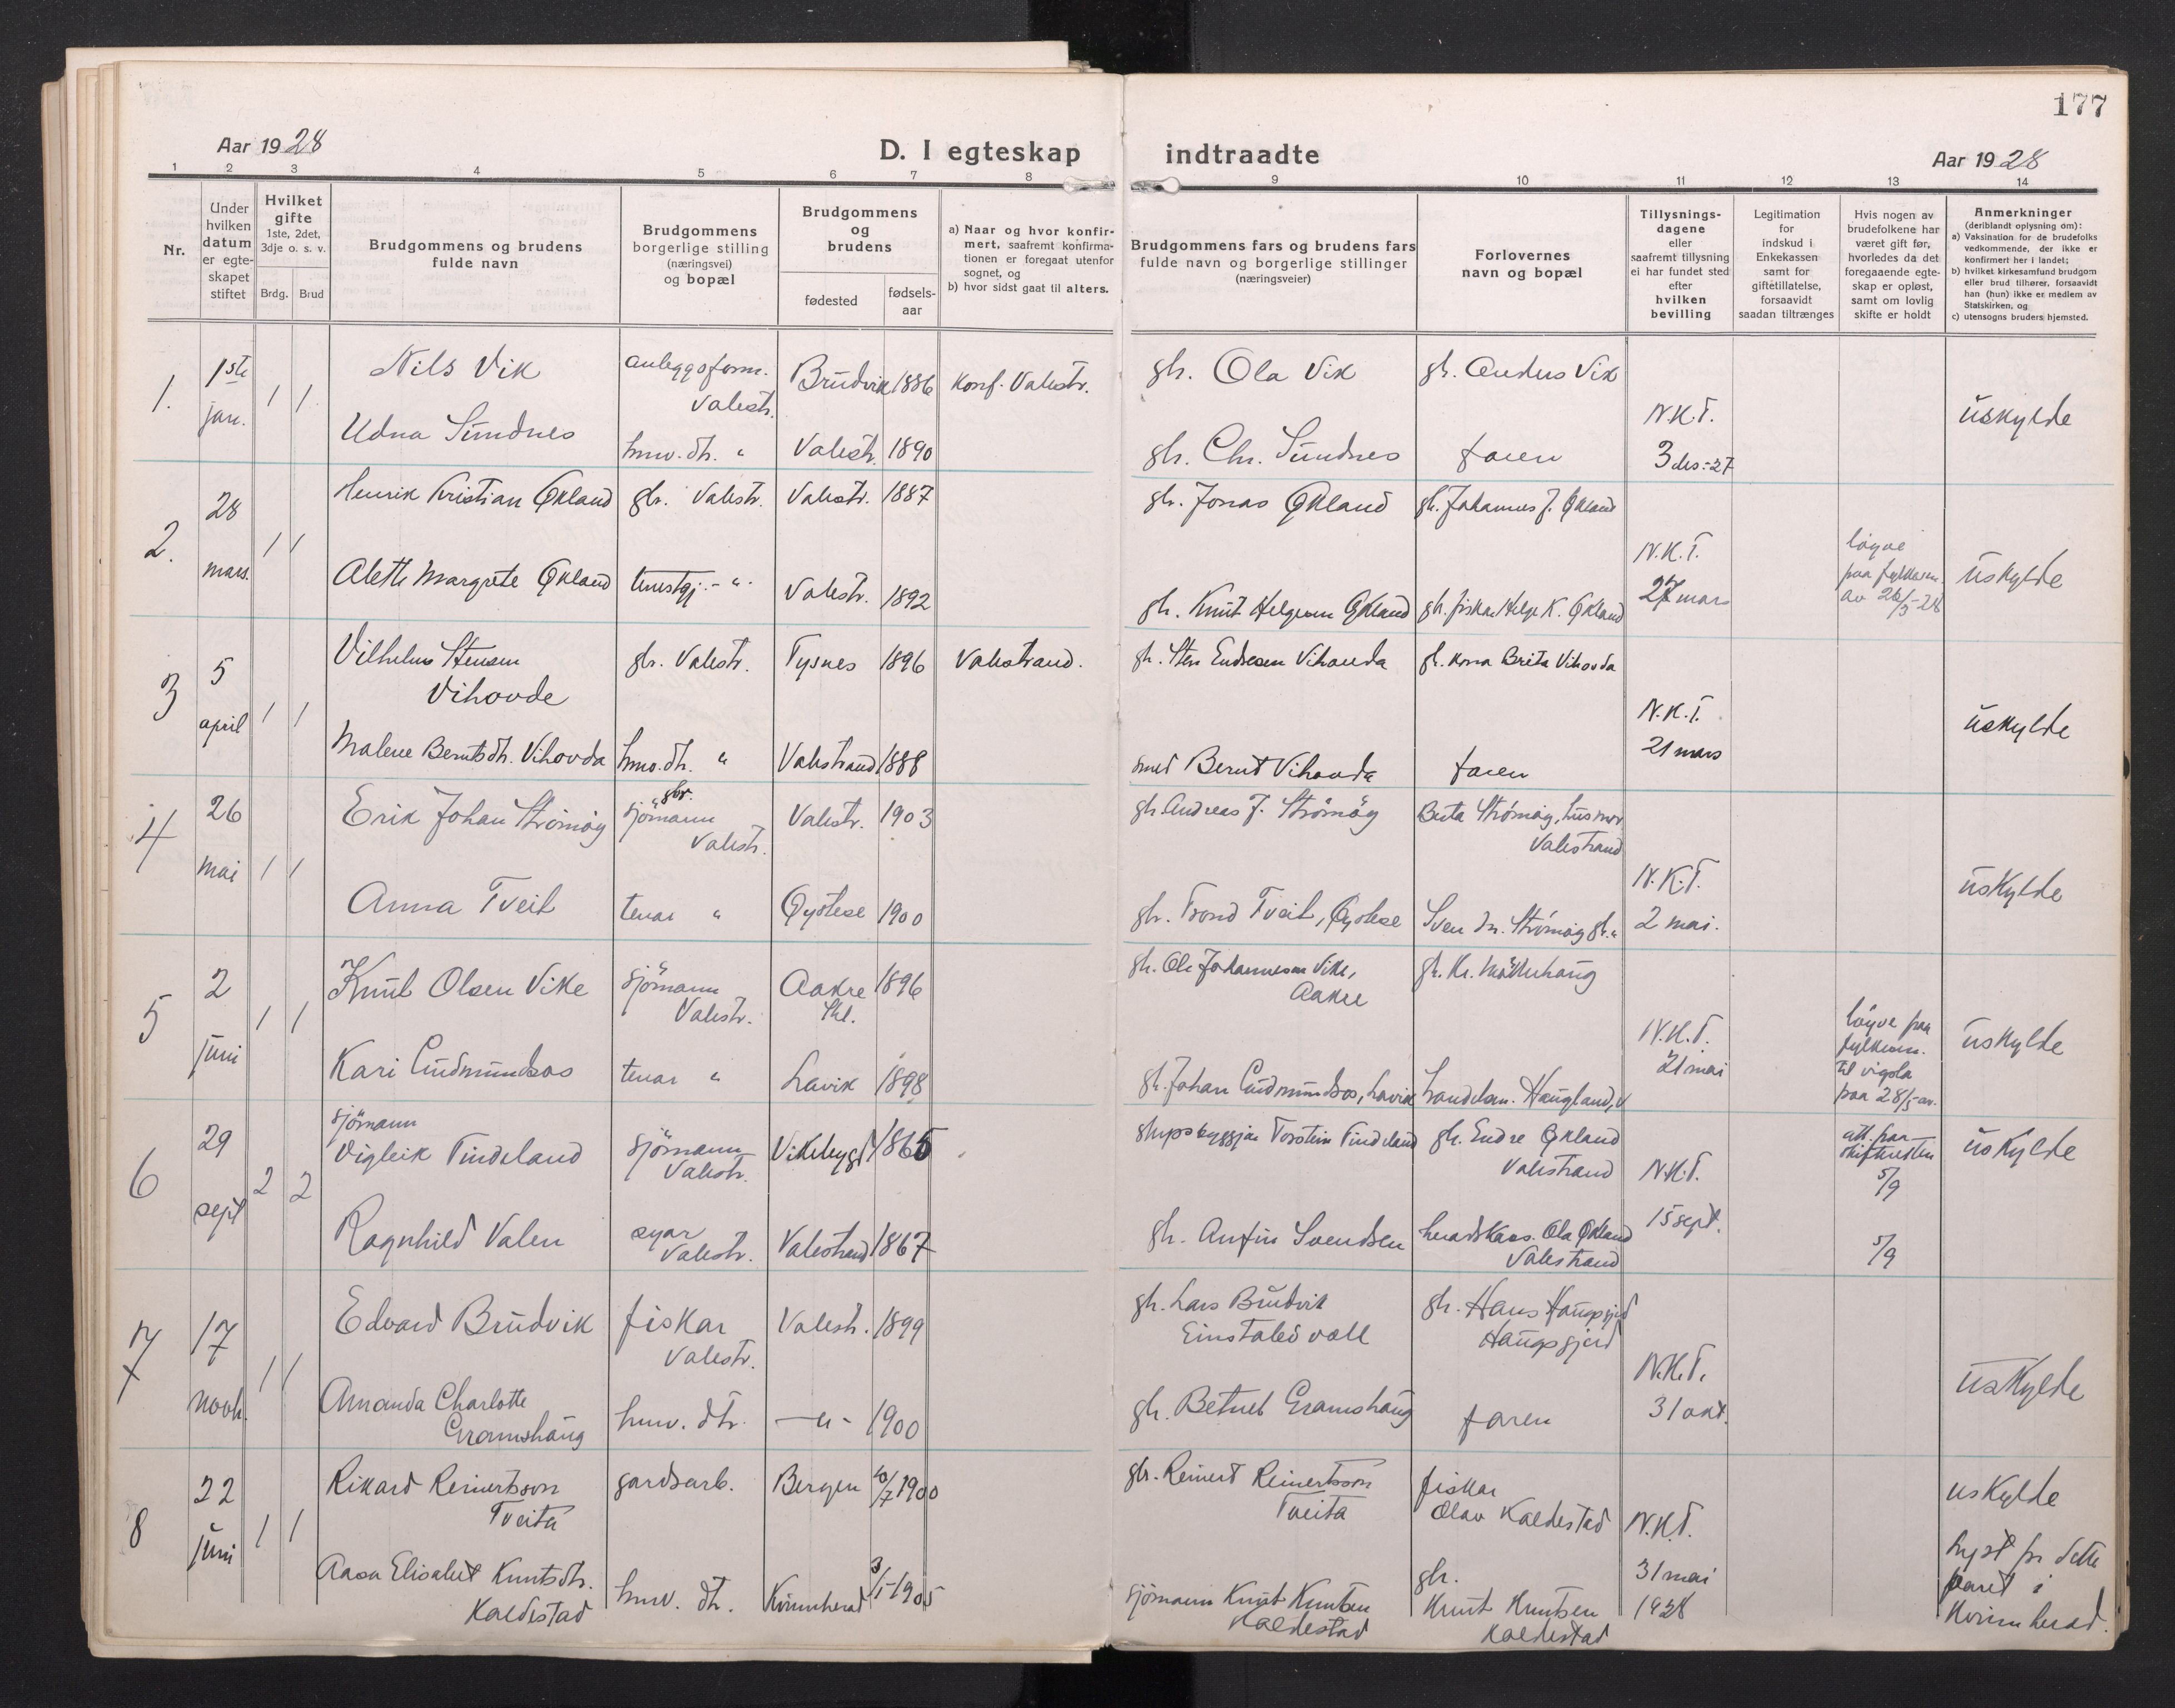 177
Aar 1928
D. I egteskap indtraadte
Aar 1928
1 2 3 4 5 6 7 8 9 10 11 12 13 14
Nr.
Under
hvilken
datum
er egte-
skapet
stiftet
Hvilket
gifte
1ste, 2det,
3dje o. s. v.
Brdg. Brud
Brudgommens og brudens
fulde navn
Brudgommens
borgerlige stilling
(næringsvei)
og bopæl
Brudgommens
og
brudens
fødested
fødsels-
aar
a) Naar og hvor konfir-
mert, saafremt konfirma-
tionen er foregaat utenfor
sognet, og
b) hvor sidst gaat til alters.
Brudgommens fars og brudens fars
fulde navn og borgerlige stillinger
(næringsveier)
Forlovernes
navn og bopæl
Tillysnings-
dagene
eller
saafremt tillysning
ei har fundet sted
efter
hvilken
bevilling
Legitimation
for
indskud i
Enkekassen
samt for
giftetillatelse,
forsaavidt
saadan tiltrænges
Hvis nogen av
brudefolkene har
været gift før,
hvorledes da det
foregaaende egte-
skap er opløst,
samt om lovlig
skifte er holdt
Anmerkninger
(deriblandt oplysning om):
a) Vaksination for de brudefolks
vedkommende, der ikke er
konfirmert her i landet;
b) hvilket kirkesamfund brudgom
eller brud tilhører, forsaavidt
han (hun) ikke er medlem av
Statskirken, og
c) utensogns bruders hjemsted.
1. 1ste jan. 1 1
Nils Vik
anleggsform.
Valestr.
Brudvik 1886
Konf. Valestr.
gbr. Ola Vik
gbr. Anders Vik
Udna Sundnes
hmv. dtr. "
Valestr. 1890
gbr. Chr. Sundnes
faren
N.K.T.
3 des. 27
uskylde
2. 28 mars. 1 1
Henrik Kristian Økland
gbr. Valestr.
Valestr. 1887
gbr. Jonas Økland
gbr. Johannes J. Økland
Alette Margrete Økland
tenestgj. - " -
Valestr. 1892
gbr. Knut Helgesen Økland
gbr. fiskar Helge K. Økland
N.K.T.
27 mars
løyve
paa fylkesm.
av 26/3-28
uskylde
3 5 april 1 1
Vilhelm Stensen
Vihovde
gbr. Valestr.
Tysnes 1896
Valestrand.
gbr. Sten Endresen Vihovda
gbr. kona Brita Vihovda
Malene Berntsdtr. Vihovda
hmv. dtr. "
Valestrand 1888
smed Bernt Vihovda
faren
N.K.T.
21 mars
uskylde
4 26 mai 1 1
Erik Johan Strömöy
gbr.
sjömann
Valestr.
Valestr. 1903
gbr. Andreas J. Strömöy
Berta Strömöy, husmor
Valestrand
Anna Tveit
tenar "
Øystese 1900
gbr. Trond Tveit, Øystese
Sven In. Strömöy gbr. "
N.K.T.
2 mai.
uskylde
5 2 juni 1 1
Knut Olsen Vike
sjömann
Valestr.
Aakre
Skl.
1896
gbr. Ole Johannesen Vike,
Aakre
gbr. Kr. Møllerhaug
Kari Gudmundsos
tenar "
Lavik 1898
gbr. Johan Gudmundsos, Lavik
handelsm. Haugland, V
N.K.T.
21 mai
løyve paa
fylkesm.
til vigsla
paa 28/5-av.
uskylde
6 29 sept 2 2
sjömann
Vigleik Tindeland
sjömann
Valestr.
Vikebygd 1865
skipsbyggjar Torstein Tindeland
gbr. Endre Økland
Valestrand
att. fraa
skifteretten
5/9
Ragnhild Valen
syar
Valestr.
Valestrand 1867
gbr. Anfin Svendsen
heradskass. Ola Økland
Valestrand
N.K.T.
15 sept.
5/9
uskylde
7 17 novb. 1 1
Edvard Brudvik
fiskar
Valestr.
Valestr. 1899
gbr. Lars Brudvik
Einstabövoll
gbr. Hans Haugsgjerd
Haugsgjerd
Amanda Charlotte
Gramshaug
hmv. dtr.
- " - 1900
gbr. Betuel Gramshaug
faren
N.K.T.
31 okt.
uskylde
8 22 juni 1 1
Rikard Reinertsson
Tveita
gardsarb.
Bergen 10/7 1900
gbr. Reinert Reinertsson
Tveita
fiskar
Olav Kaldestad
Aasa Elisabet Knutsdtr.
Kaldestad
hmv. dtr.
Kvinnherad 3/1-1905
sjömann Knut Knutsen
Kaldestad
gbr.
Knut Knutsen
Kaldestad
N.K.T.
31 mai
1928
uskylde
lyst for dette
paret i
Kvinnherad.